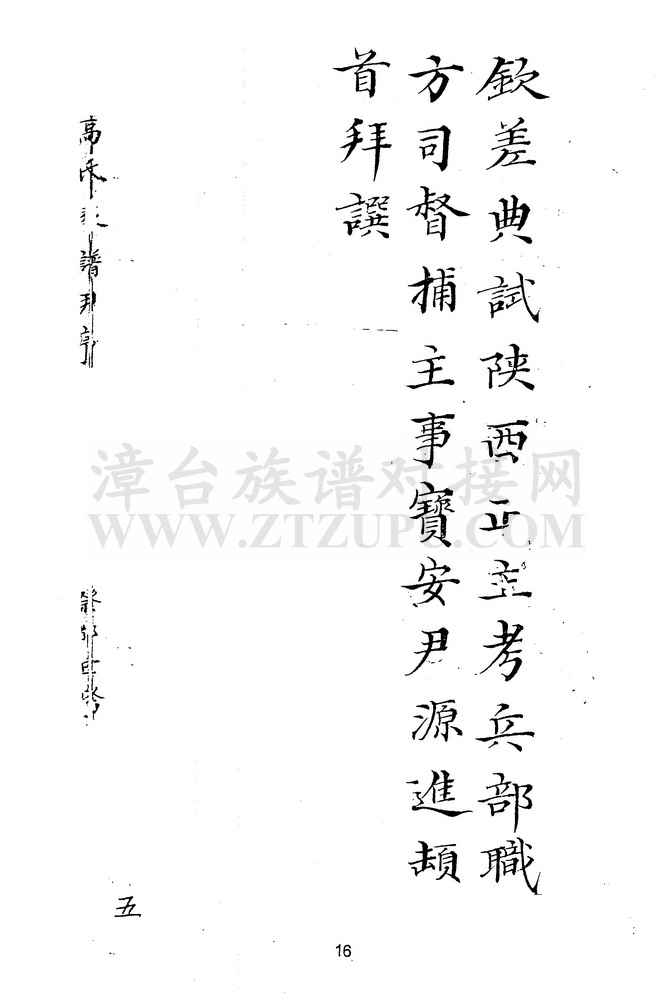 欽差典試陝西正主考兵部職
方司督捕主事寶安尹源進頓
首拜譔
高氏族譜尹序
五
漳台族谱对接网
WWW.ZTZUPU.COM
16